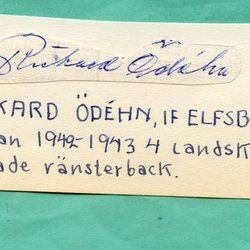 Rickard Ödéhn
KARD ÖDÉHN, IF ELFSB
an 1942-1943 4 landsk
ade vänsterback.